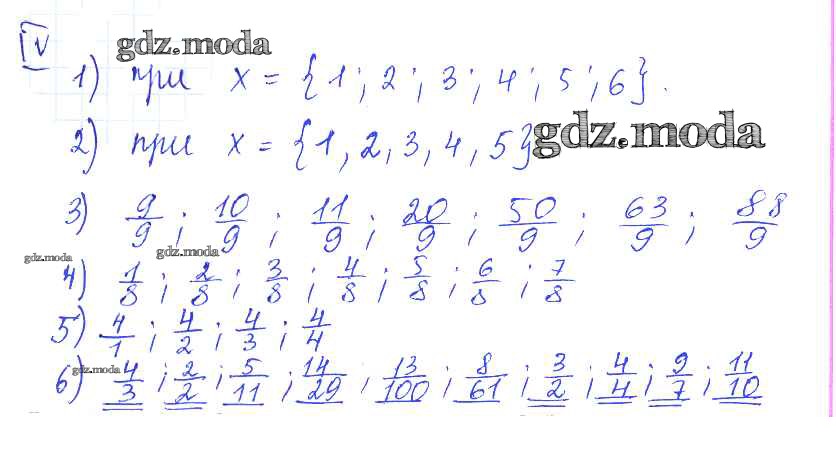 IV
gdz.moda
1) при x = {1; 2; 3; 4; 5; 6}.
2) при x = {1, 2, 3, 4, 5} gdz.moda
3) 9/9; 10/9; 11/9; 20/9; 50/9; 63/9; 88/9
gdz.moda gdz.moda
4) 1/8; 2/8; 3/8; 4/8; 5/8; 6/8; 7/8
5) 4/1; 4/2; 4/3; 4/4
6) gdz.moda 4/3; 2/2; 5/11; 14/29; 13/100; 8/61; 3/2; 4/4; 9/7; 11/10